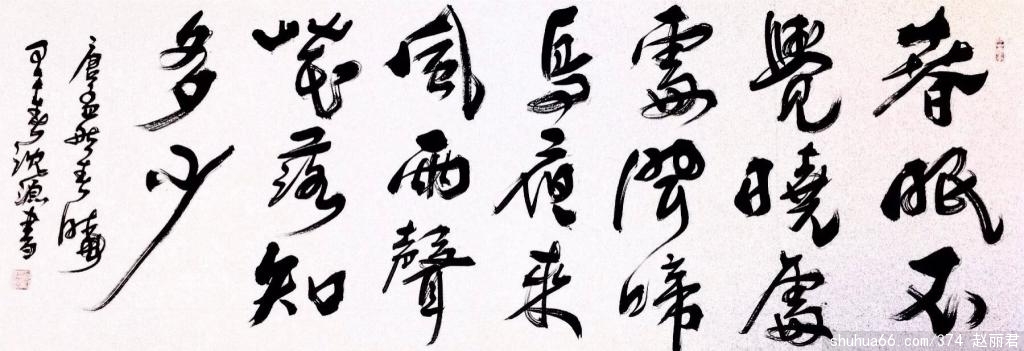 春眠不
覺曉處
處聞啼
鳥夜來
風雨聲
花落知
多少
唐孟浩然春曉
春沈源書
shuhua66.com/374 赵丽君